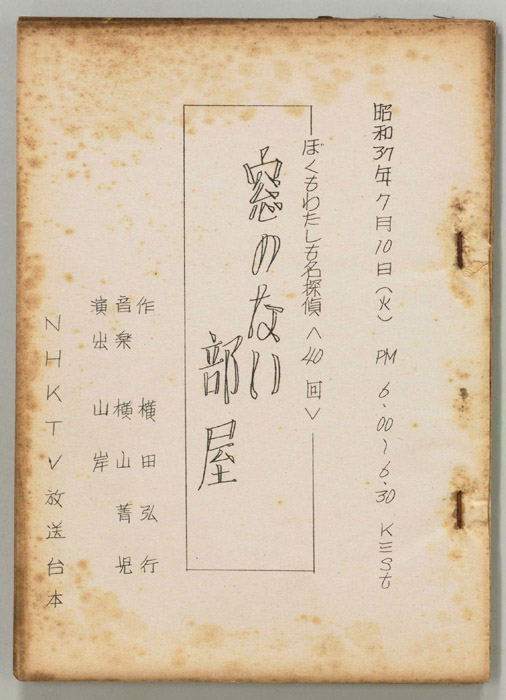 昭和37年7月10日(火) PM 6.00~6.30 K三St
ぼくもわたしも名探偵<40回>
窓のない
部屋
作 横田弘行
音楽 横山菁児
演出 山岸
NHKTV放送台本